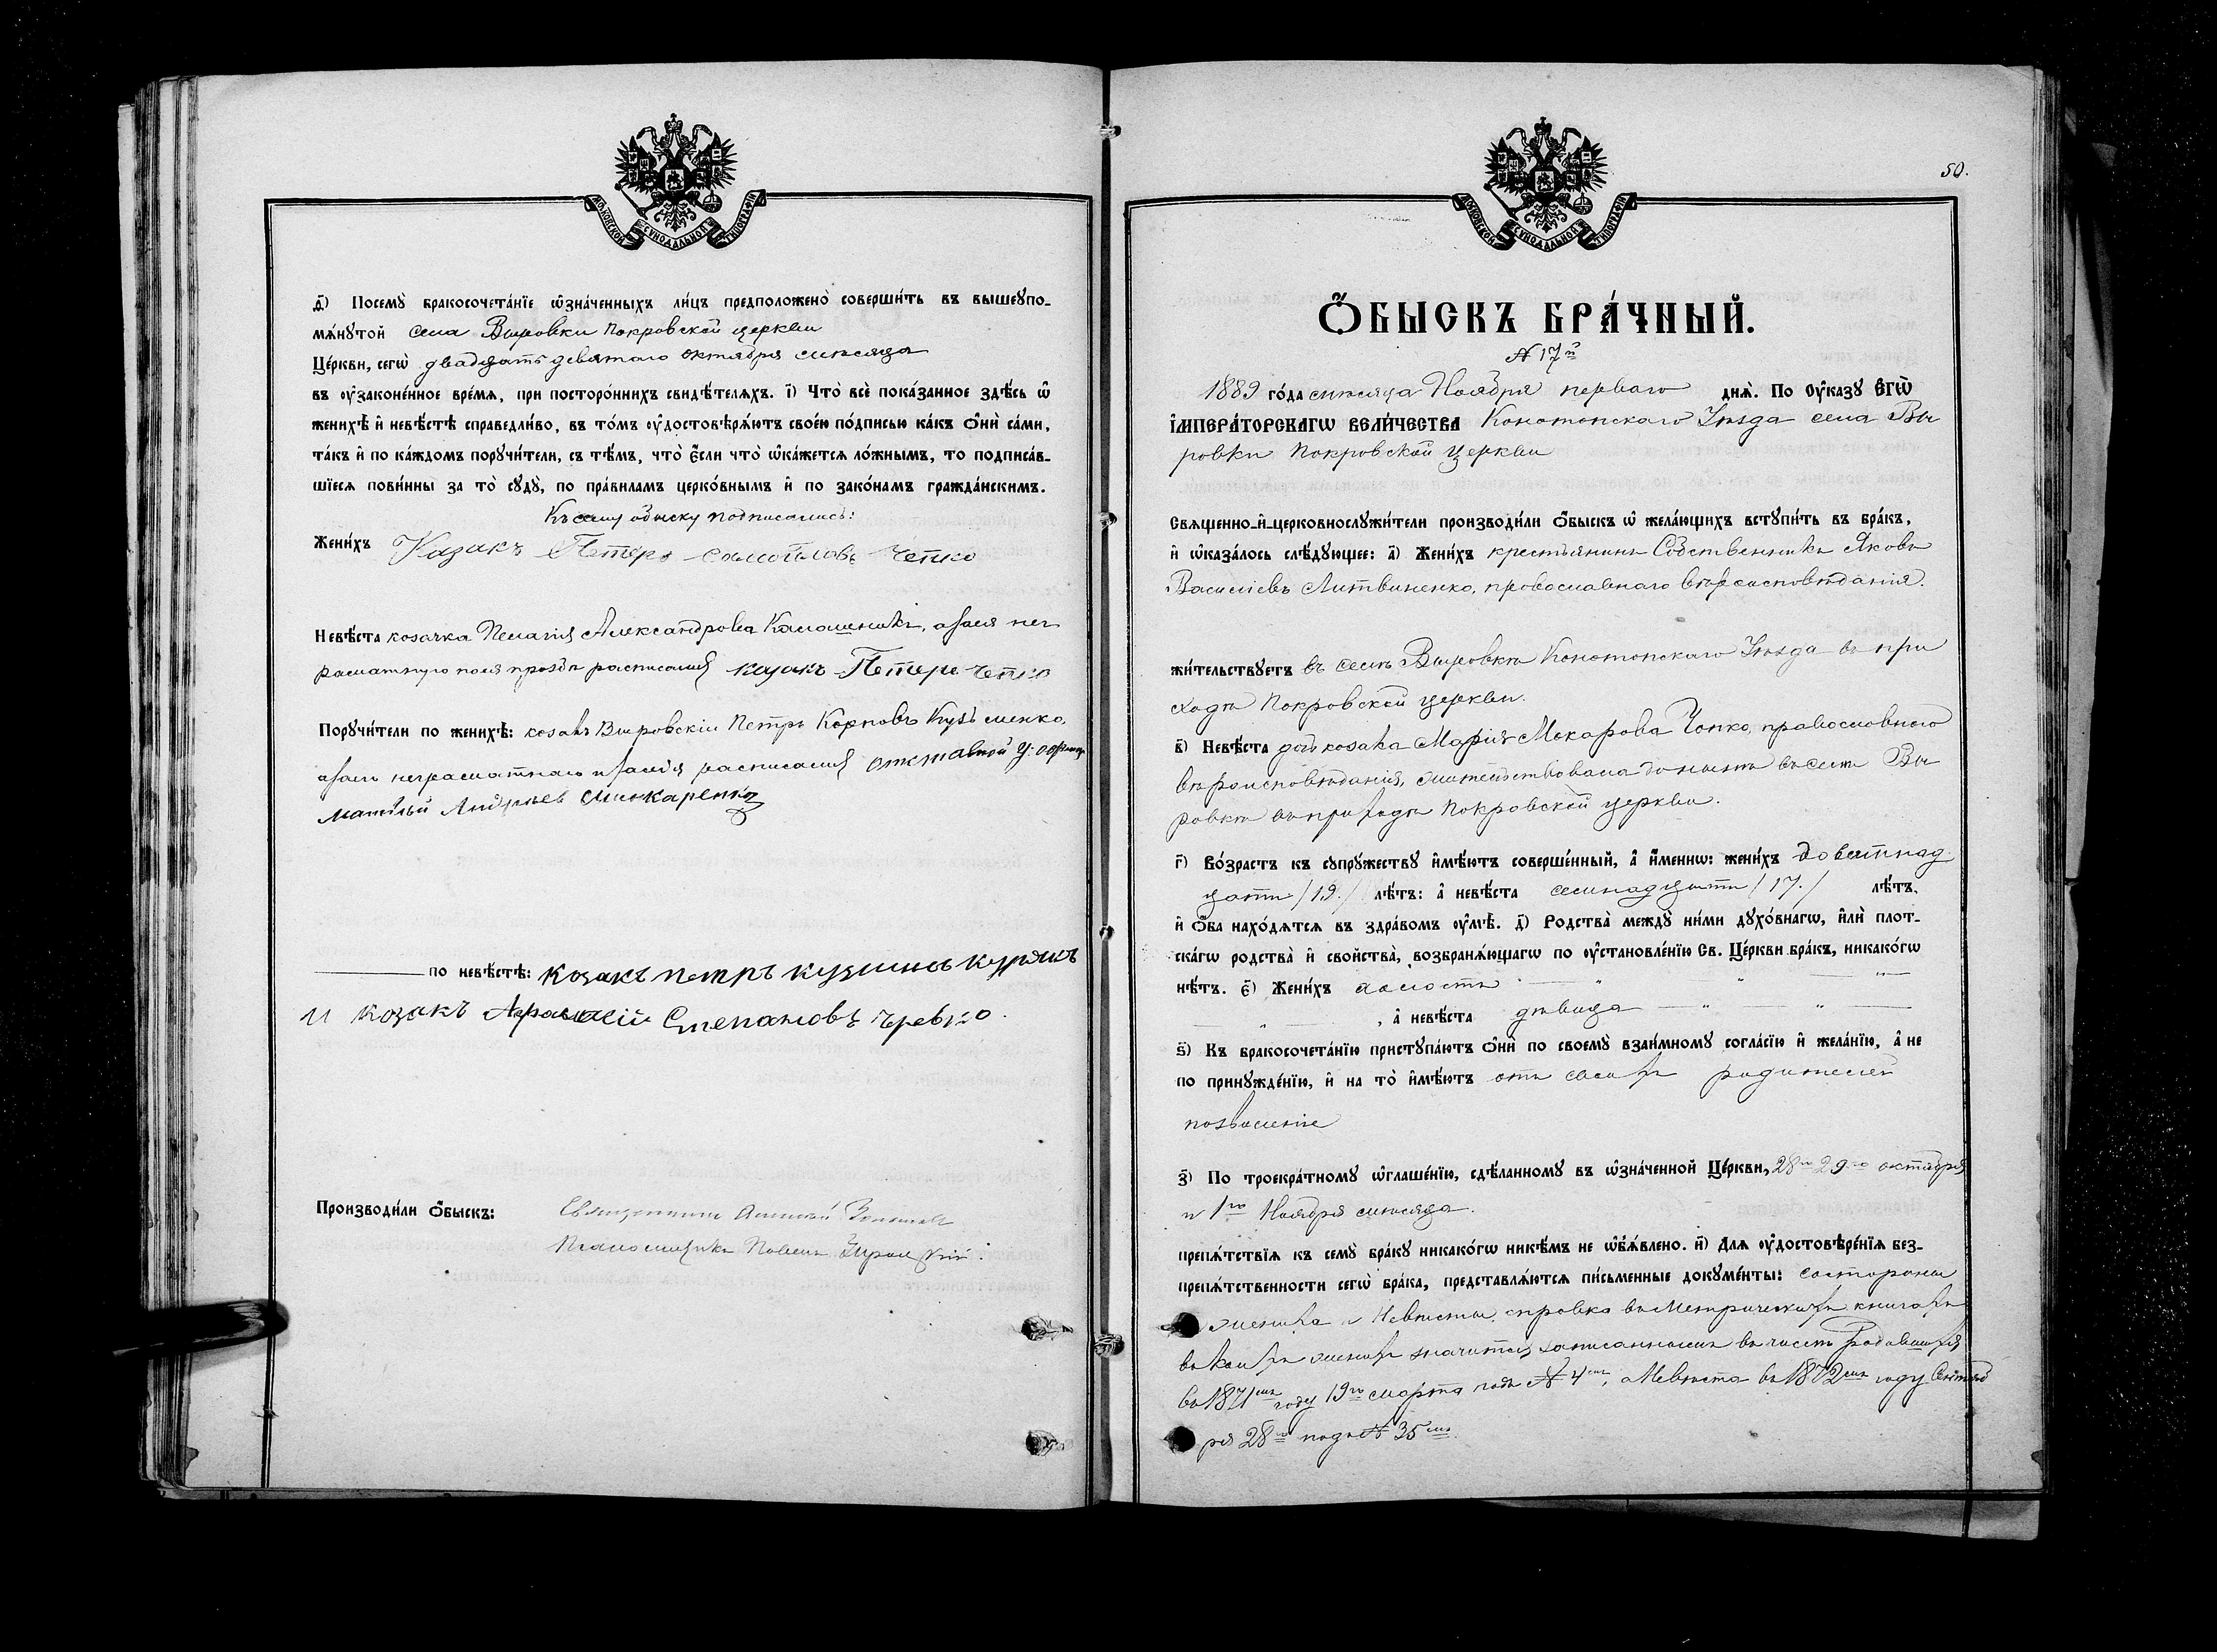 МОСКОВСКОЙ СѴНОДАЛЬНОЙ ТИПОГРАФІИ
д҃) Посемꙋ̀ бракосочета́нїе ѡ҆зна́ченныхъ ли́цъ предположено̀ соверши́ть въ вышеꙋпо-
мѧ́нꙋтой села Вировки Покровской церкви
Це́ркви, сегѡ̀ двадцать девятаго октября мѣсяца
въ ᲂу҆зако́ненное вре́мѧ, при посторо́ннихъ свидѣ́телѧхъ. і҃) Что̀ всѐ пока́занное здѣ́сь ѡ҆
женихѣ̀ и҆ невѣ́стѣ справедли́во, въ то́мъ ᲂу҆достовѣрѧ́ютъ свое́ю по́дписью ка́къ ѻ҆нѝ са́ми,
та́къ и҆ по ка́ждомъ порꙋчи́тели, съ тѣ́мъ, что̀ є҆́сли что̀ ѡ҆ка́жетсѧ ло́жнымъ, то подписа́в-
шїесѧ пови́нны за то̀ сꙋдꙋ̀, по пра́виламъ церко́внымъ и҆ по зако́намъ гражда́нскимъ.
Къ сему обыску подписались:
Жени́хъ Казакъ Петеръ Самойловъ Чепко
Невѣ́ста козачка Пелагія Александрова а за нея не
грамотную по ея прозьбѣ росписался казакъ Петеръ Чепко
Порꙋчи́тели по женихѣ̀: козакъ Вировскій Петръ Карповъ Кузьменко,
а за него неграмотнаго росписался отставной у: офицер
Матвѣй Андрѣев Шинкаренко
по невѣ́стѣ: козакъ петръ кузминъ курякъ
и козакъ Афанасій Степановъ Чревко.
Производи́ли ѻ҆́быскъ: Священникъ
Псаломщикъ Павелъ
50.
МОСКОВСКОЙ СѴНОДАЛЬНОЙ ТИПОГРАФІИ
Ѻ҆́БЫСКЪ БРА́ЧНЫЙ.
№ 17й
1889 го́да мѣсяца Ноября перваго днѧ̀. По ᲂу҆ка́зꙋ Є҆ГѠ̀
І҆МПЕРА́ТОРСКАГѠ ВЕЛИ́ЧЕСТВА Конотопскаго Уѣзда села Ви
ровки Покровской церкви
Свѧщенно-и҆-церковнослꙋжи́тели производи́ли ѻ҆́быскъ ѡ҆ жела́ющихъ встꙋпи́ть въ бра́къ,
и҆ ѡ҆каза́лось слѣ́дꙋющее: а҃) Жени́хъ крестьянинъ Собственникъ Яковъ
Василіевъ Литвиненко, православнаго вѣроисповѣданія.
жи́тельствꙋетъ въ селѣ Вировкѣ Конотопскаго Уѣзда въ при
ходѣ Покровской церкви.
в҃) Невѣ́ста дочь козака Марія Макарова Чопко, православного
вѣроисповѣданія, жительствовала донынѣ въ селѣ Ви
ровкѣ въ приходѣ Покровской церкви.
г҃) Во́зрастъ къ сꙋпрꙋ́жествꙋ и҆мѣ́ютъ соверше́нный, а҆ и҆́меннѡ: жени́хъ девятнад
цати /19./ лѣ́тъ: а҆ невѣ́ста семнадцати /17./ лѣ́тъ.
и҆ ѻ҆́ба нахо́дѧтсѧ въ здра́вомъ ᲂу҆мѣ̀. д҃) Родства̀ междꙋ̀ ни́ми дꙋхо́внагѡ, и҆лѝ плот-
ска́гѡ родства̀ и҆ сво́йства, возбранѧ́ющагѡ по ᲂу҆становле́нїю Св. Це́ркви бра́къ, никако́гѡ
нѣ́тъ. є҃) Жени́хъ холостъ
, а҆ невѣ́ста дѣвица
ѕ҃) Къ бракосочета́нїю пристꙋпа́ютъ ѻ҆нѝ по своемꙋ̀ взаи́мномꙋ согла́сїю и҆ жела́нїю, а҆ не
по принꙋжде́нїю, и҆ на то̀ и҆мѣ́ютъ отъ своихъ родителей
позволеніе
з҃) По троекра́тномꙋ ѡ҆глаше́нїю, сдѣ́ланномꙋ въ ѡ҆зна́ченной Це́ркви, 28го 29го октября
и 1го Ноября мѣсяца.
препѧ́тствїѧ къ семꙋ̀ бра́кꙋ никако́гѡ никѣ́мъ не ѡ҆б̾ѧ́влено. и҃) Длѧ ᲂу҆достовѣре́нїѧ без-
препѧ́тственности сегѡ̀ бра́ка, представлѧ́ютсѧ пи́сьменные докꙋме́нты: состороны
жениха и Невѣсты, справка въ Метрическихъ книгахъ
въ коихъ женихъ значится записаннымъ въ числѣ Родившихся
въ 1871мъ году 19го марта подъ № 4мъ, а Невѣста въ 1872мъ году Сентяб
ря 28го подъ № 35мъ.